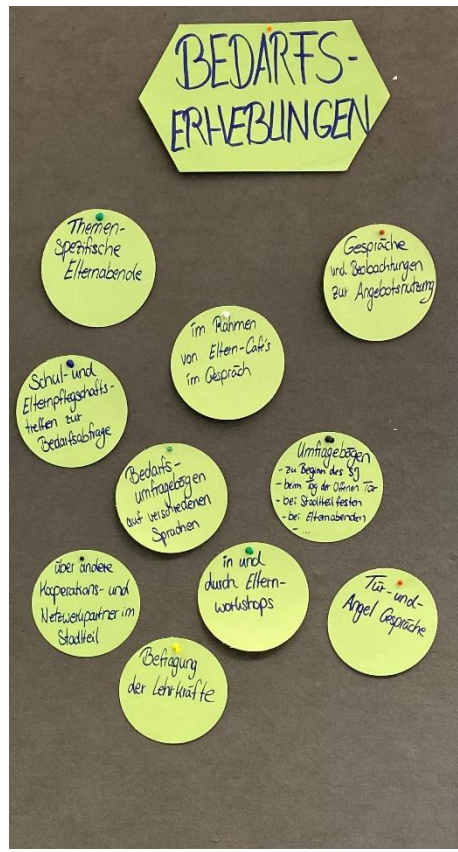 BEDARFS-
ERHEBUNGEN
Themen-
spezifische
Elternabende
Gespräche
und Beobachtungen
zur Angebotsnutzung
im Rahmen
von Eltern-Café's
im Gespräch
Schul- und
Elternpflegschafts-
treffen zur
Bedarfsabfrage
Bedarfs-
umfragebögen
auf verschiedenen
Sprachen
Umfragebögen
- zu Beginn des SJ
- beim Tag der Offenen Tür
- bei Stadtteilfesten
- bei Elternabenden
- ...
über andere
Kooperations- und
Netzwerkpartner im
Stadtteil
in und
durch Eltern-
workshops
Tür-und-
Angel Gespräche
Befragung
der Lehrkräfte